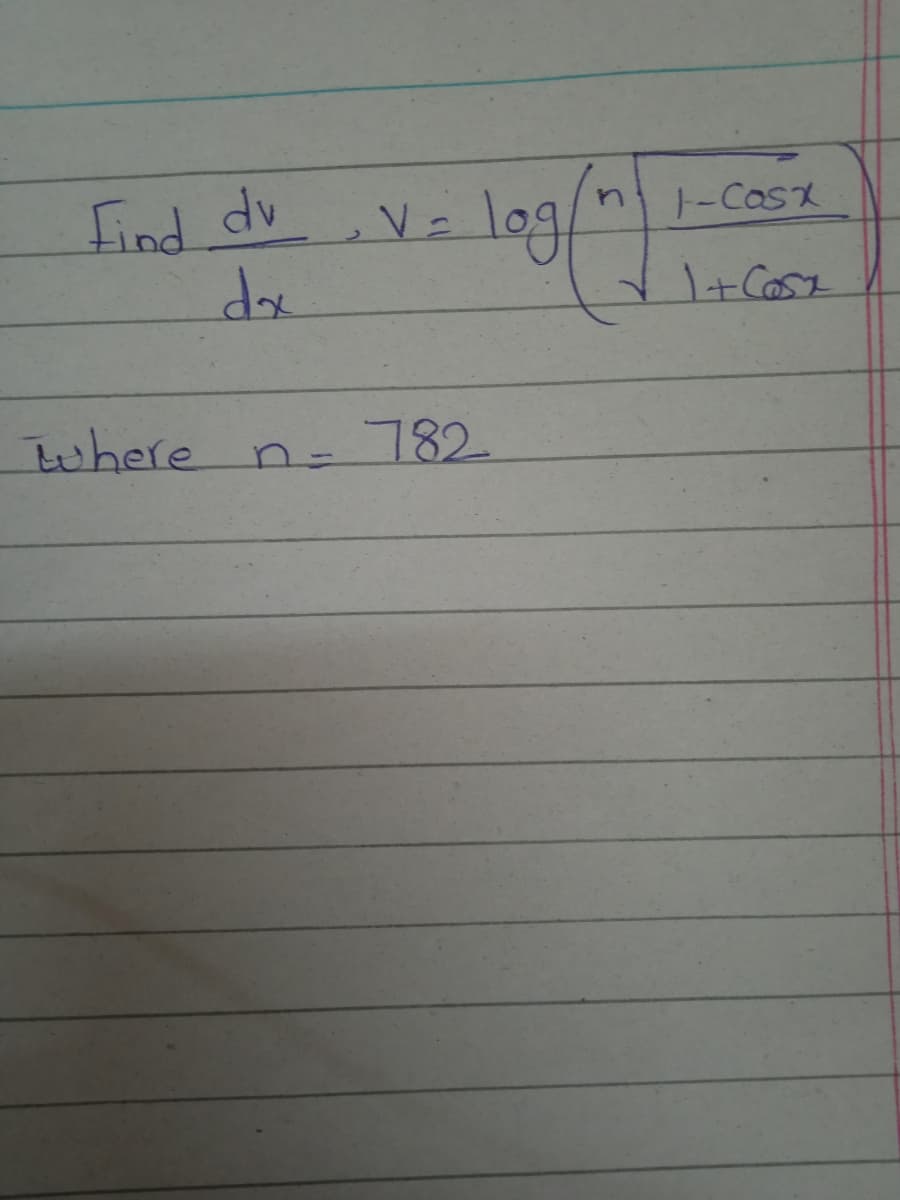 Find dv/dx , V = log(n√(1-Cosx/1+Cosx))
where n = 782